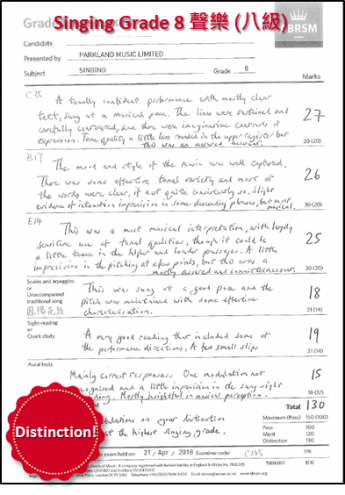 Singing Grade 8 聲樂 (八級)
Candidate
Presented by PARKLAND MUSIC LIMITED
Subject SINGING Grade 8
Marks
C35
A tonally confident performance with mostly clear
text, sung at a musical pace. The lines were sustained and
carefully contoured, and there were imaginative contrasts of
expression. Tone quality a little less rounded in the upper register but
this was an assured account.
27
30 (20)
B17
The mood and style of the music was well explored.
There was some effective tonal variety and more of
the words were clear, if not quite consistently so. Slight
evidence of intonation imprecision in some descending phrases, but most
musical.
26
30 (20)
E14
This was a most musical interpretation, with largely
sensitive use of tonal qualities, though it could be
a little tense in the higher and louder passages. A little
imprecision in the pitching at a few points, but this was a
mostly assured and committed account.
25
30 (20)
Scales and arpeggios
or
Unaccompanied
traditional song
This was sung at a good pace and the
pitch was maintained with some effective
characterisation.
18
21 (14)
Sight-reading
or
Quick study
A very good reading that included some of
the performance directions. A few small slips
19
21 (14)
Aural tests
Mainly correct responses. One modulation not
recognised and a little imprecision in the sung sight
reading. Mostly insightful in musical perception.
15
18 (12)
Total 130
Distinction!
on your distinction
at the highest singing grade.
Maximum (Pass) 150 (100)
Pass 100
Merit 120
Distinction 130
exam held 21 / Apr / 2018 Examiner code